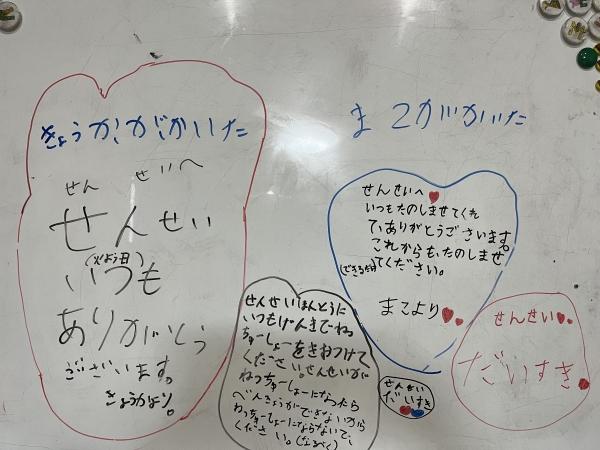 きょうかがかいた
せん せいへ
せんせい
(かよう日)
いつも
ありがとう
ございます。
きょうかより。
まこがかいた
せんせいへ
いつもたのしませてくれ
て、ありがとうございます。
これからも、たのしませ
(できるだけ)
てください。
まこより
せんせいほんとうに
いつもげんきでねっ
ちゅーしょーをきおつけて
ください。せんせいが
ねっちゅーしょーになったら
べんきょうができないから
ねっちゅーしょーにならないで、
ください。(なるべく)
せんせい
だいすき
せんせい
だいすき